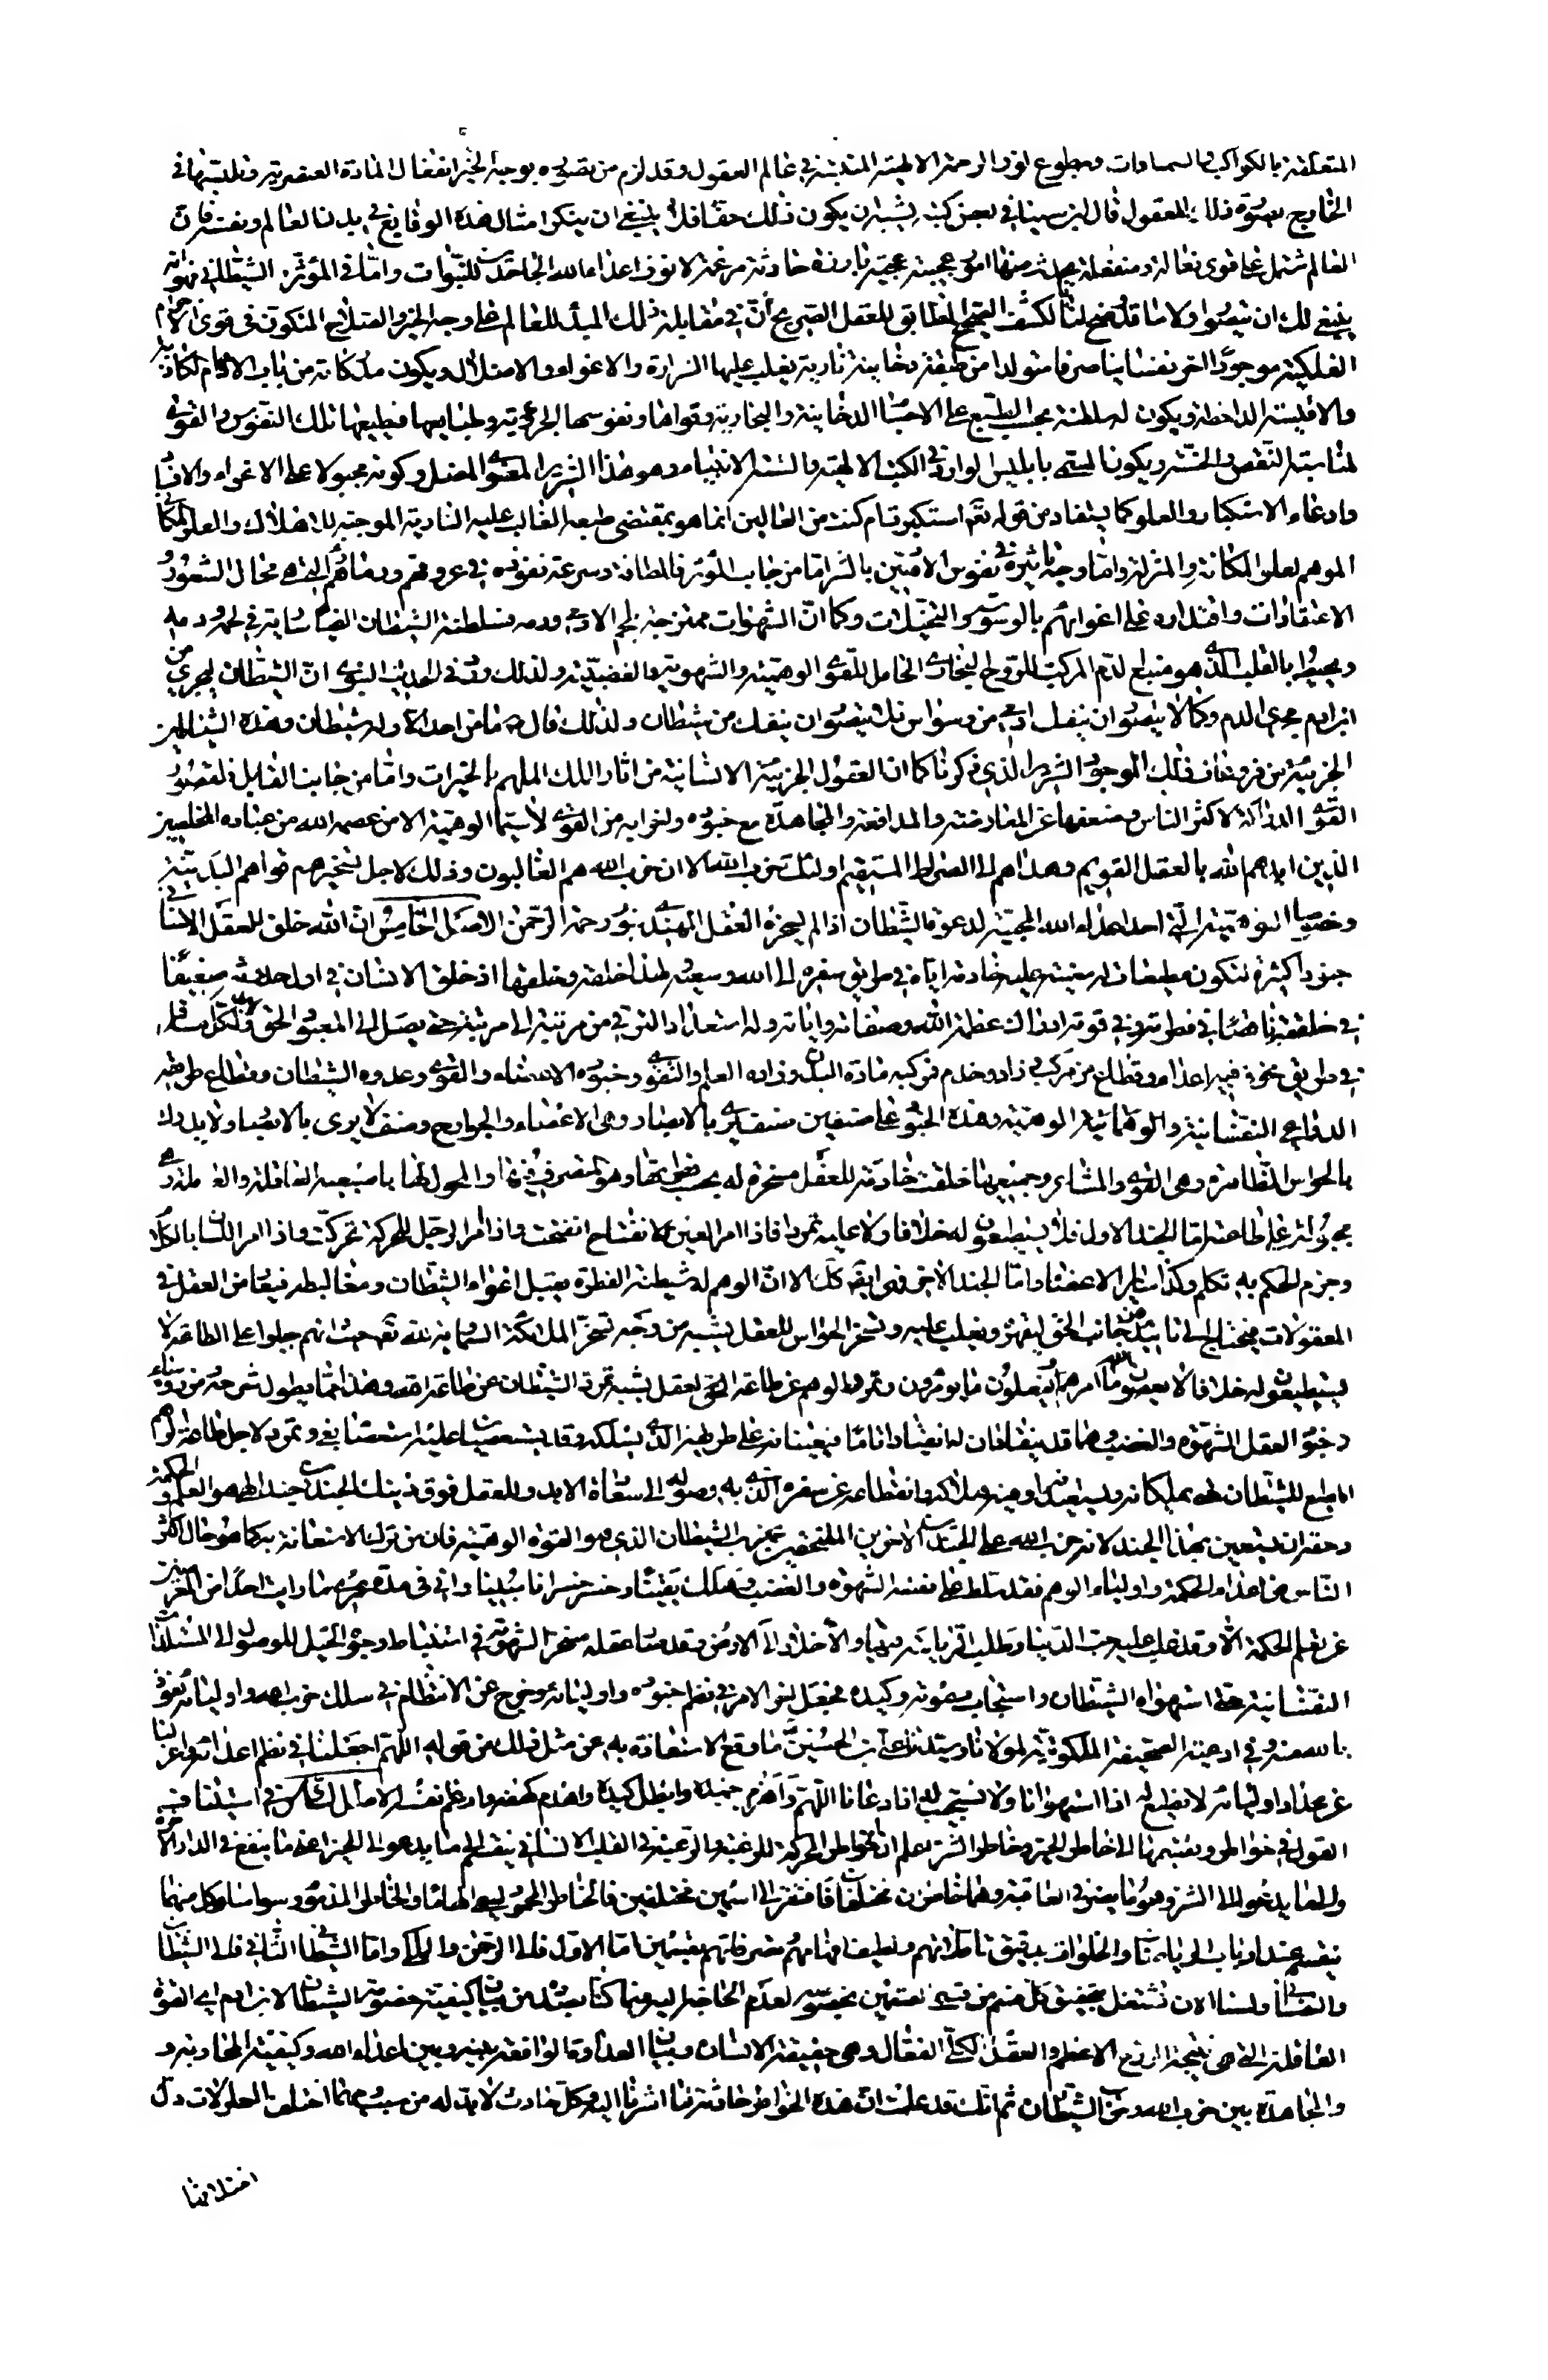 المتعلقة بالكواكب والسماوات وبطلوع نور الرحمة الالهية المنبثة في عالم العقول وقد لزم من تصوره بوجه الخير انفعال المادة العنصرية وتلبسها في
الخارج بصورة ذلك المعقول قال ابن سينا في بعض كتبه يشبه ان يكون ذلك حقا فلا ينبغي ان يتنكر امثال هذه الوقايع في بدن العالم ونفسه فان
العالم مشتمل على قوى فعالة ومنفعلة يحدث منها امور عجيبة نادرة حادثة مرغمة لانوف اعداء الله الجاحدين للنبوات واما في المؤثر الشيطاني فهو انه
ينبغي لك ان تتصور اولا ما قد صح لنا بالكشف الصحيح المطابق للعقل الصريح ان في مقابلة ذلك المبدأ للعالم على وجه الخير والصلاح المتكون في قوى الاجرام
الفلكية موجودا اخر نفسانيا صرفا متولدا من طبقة دخانية نارية يغلب عليها الشرارة والاغواء والاضلال ويكون ملكاته من باب الاوهام الكاذبة
والاقيسة الداحضة ويكون له سلطنة بحسب الطبع على الاجسام الدخانية والبخارية وقواها ونفوسها الجزئية وطبايعها فيطيعها تلك النفوس والقوى
لمناسبة النقص والخسة ويكون المسمى بابليس الوارد في الكتب الالهية والسنة الانبياء وهو هذا الشرير المغوي المضل وكونه مجبولا على الاغواء والافساد
وادعاء الاستكبار والعلو كما يستفاد من قوله تعالى استكبرت ام كنت من العالين انما هو بمقتضى طبعه الغالب عليه النارية الموجبة للاهلاك والعلو المكاني
الموهم لعلو المكانة والمنزلة واما وجه تاثيره في نفوس الادميين بالشر اما من جانب المؤثر فللطافته وسرعة نفوذه في عروقهم ودمائهم التي هي محال الشعور و
الاعتقادات واقتداره على اغوائهم بالوسوسة والتخيلات وكما ان الشهوات ممتزجة بلحم الادمي ودمه فسلطنة الشيطان ايضا سارية في لحمه ودمه
ومحيط بالقلب الذي هو منبع الدم المركب للروح البخاري الحامل للقوى الوهمية والشهوية والغضبية ولذلك ورد في الحديث النبوي ان الشيطان ليجري من
ابن ادم مجرى الدم وكما لا يتصور ان ينفك ادمي من وسواس فلا يتصور ان ينفك من شيطان ولذلك قال ما من احد الا وله شيطان وهذه الشياطين
الجزئية من فروعات ذلك الموجود الشرير الذي ذكرناه كما ان العقول الجزئية الانسانية من اثار الملك الملهم بالخيرات واما من جانب القابل فلقصور
القوة الدراكة لاكثر الناس وضعفها عن المعارضة والمدافعة والمجاهدة مع جنوده واحزابه من القوى لاسيما الوهمية الا من عصمه الله من عباده المخلصين
الذين ايدهم الله بالعقل القويم وهداهم الى الصراط المستقيم اولئك حزب الله الا ان حزب الله هم الغالبون وذلك لاجل تسخيرهم قواهم البدنية
وخصوصا الوهمية التي احد اعداء الله المجيبة لدعوة الشيطان اذا لم يسخره العقل المهتدي بنور رحمة الرحمن الاصل الخامس ان الله خلق للعقل الانساني
جنودا كثيرة لتكون مطيعات له معينة عليه خادمة اياه في طريق سفره الى الله وسعيه لهذا خلقت وخلقها اذ خلق الانسان في اول حدوثه ضعيفا
في خلقته ناقصا في فطرته وفي قوته ادراك عظمة الله وصفاته واياته وله استعداد الترقي من مرتبة الى مرتبة حتى يصل الى المعبود الحق ولا بد لكل مسافر
في طريق مخوف فيه اعداء وقطاع من مركب وزاد وخدم فمركبه مادة البدن وزاده العلم والتقوى وجنوده الاعضاء والقوى وعدوه الشيطان وقطاع طريقه
الدواعي النفسانية والوهمانية الوهمية وهذه الجنود على صنفين صنف يرى بالابصار وهي الاعضاء والجوارح وصنف لا يرى بالابصار ولا يدرك
بالحواس الظاهرة وهي القوى والمشاعر وجميعها خلقت خادمة للعقل مسخرة له بحسب فطرتها وهو المتصرف فيها
مجبولة على طاعته اما الجند الاول فلا يستطيعون له خلافا ولا عليه تمردا فاذا امر العين للانفتاح انفتحت واذا امر الرجل للحركة تحركت واذا امر اللسان بالكلام
وجزم الحكم به تكلم وكذا ساير الاعضاء واما الجند الاخر فهو ايضا كذلك الا ان الوهم له شيطنة الفطرة يقبل اغواء الشيطان ومغالبطه فيعارض العقل في
المعقولات فيحتاج الى تاييد من جانب الحق ليقهره ويغلب عليه وتسخر الحواس للعقل يشبه من وجه تسخر الملائكة السماوية لله تعالى حيث انهم جبلوا على الطاعة لا
يستطيعون له خلافا لا يعصون الله ما امرهم ويفعلون ما يؤمرون وتمرد الوهم عن طاعة الحق العقل يشبه تمرد الشيطان عن طاعة الله وهذا مما يطول شرحه ومن رؤساء
جنود العقل الشهوة والغضب وهما قد ينقادان له انقيادا تاما فيعينانه على طريقه الذي يسلكه وقد يستعصيان عليه استعصاء بغي وتمرد لاجل طاعة الوهم
المطيع للشيطان حتى يملكانه ويستعبدانه وفيه هلاكه وانقطاعه عن سفره الذي به وصوله الى سعادة الابد وللعقل فوق ذينك الجندين جند اخر هو العلم والحكمة
وحقه ان يستعين بهذا الجند لانه حزب الله على الجندين الاخرين الملتحقين بحزب الشيطان الذي هو القوة الوهمية فان من ترك الاستعانة به كما هو حال اكثر
الناس من اعداء الحكمة واولياء الوهم فقد تسلط على نفسه الشهوة والغضب وهلك يقينا وخسر خسرانا مبينا واني في مدة عمري هذا ما رايت احدا من المعرضين
عن تعلم الحكمة الا وقد غلب عليه حب الدنيا وطلب الرياسة فيها والاخلاد الى الارض وقد صار عقله مسخر الشهوته في استنباط وجوه الحيل للوصول الى المستلذات
النفسانية حتى استهواه الشيطان واستجاب دعوته وكيده فجعل الامر في نظم جنوده واوليائه وخرج عن الانتظام في سلك حزب الله واوليائه نعوذ
بالله منه وفي ادعية الصحيفة الملكوتية لمولانا وسيدنا علي بن الحسين ما وقع الاستعاذة به عن مثل ذلك من قوله اللهم اجعلنا في نظم اعدائه واعزلنا
عن عداد اوليائه لا نطيع له اذا استهوانا ولا نستجيب له اذا دعانا اللهم واهزم جنده وابطل كيده واهدم كهفه وارغم انفه الاصل السادس في استيناف
القول في خواطر وتقسيمها الى خاطر الخير وخاطر الشر اعلم ان الخواطر المحركة للرغبة والرهبة في القلب الانساني ينقسم الى ما يدعو الى الخير اعني ما ينفع في الدار الاخرة
والى ما يدعو الى الشر وهو ما يضر في العاقبة وهما خاطران مختلفان فافتقرا الى اسمين مختلفين فالخاطر المحمود يسمى الهاما والخاطر المذموم وسواسا وكل منهما
ينقسم عند ارباب الرياضات والخلوات بدقيق تاملاتهم ولطيف افهامهم ومصرفاتهم بقسمين اما الاول فله الرحمن والملكي واما الشيطاني الثاني فله الشيطاني
والنفساني ولسنا الان نشتغل بتحقيق كل قسم من قسمي القسمين بخصوصه لعدم الحاجة اليه فيما كنا بصدده من بيان كيفية خصومة الشيطان لابن ادم اي القوة
العاقلة التي هي نتيجة الروح الاعظم والعقل الكلي الفعال وهي حقيقة الانسان وبيان العداوة الواقعة بينه وبين اعداء الله وكيفية المحاربة و
والمجاهدة بين حزب الله وحزب الشيطان ثم انك قد علمت ان هذه الخواطر حادثة كما اشرنا اليه وكل حادث لابد له من سبب ومهما اختلف المعلولات دل
اختلافها